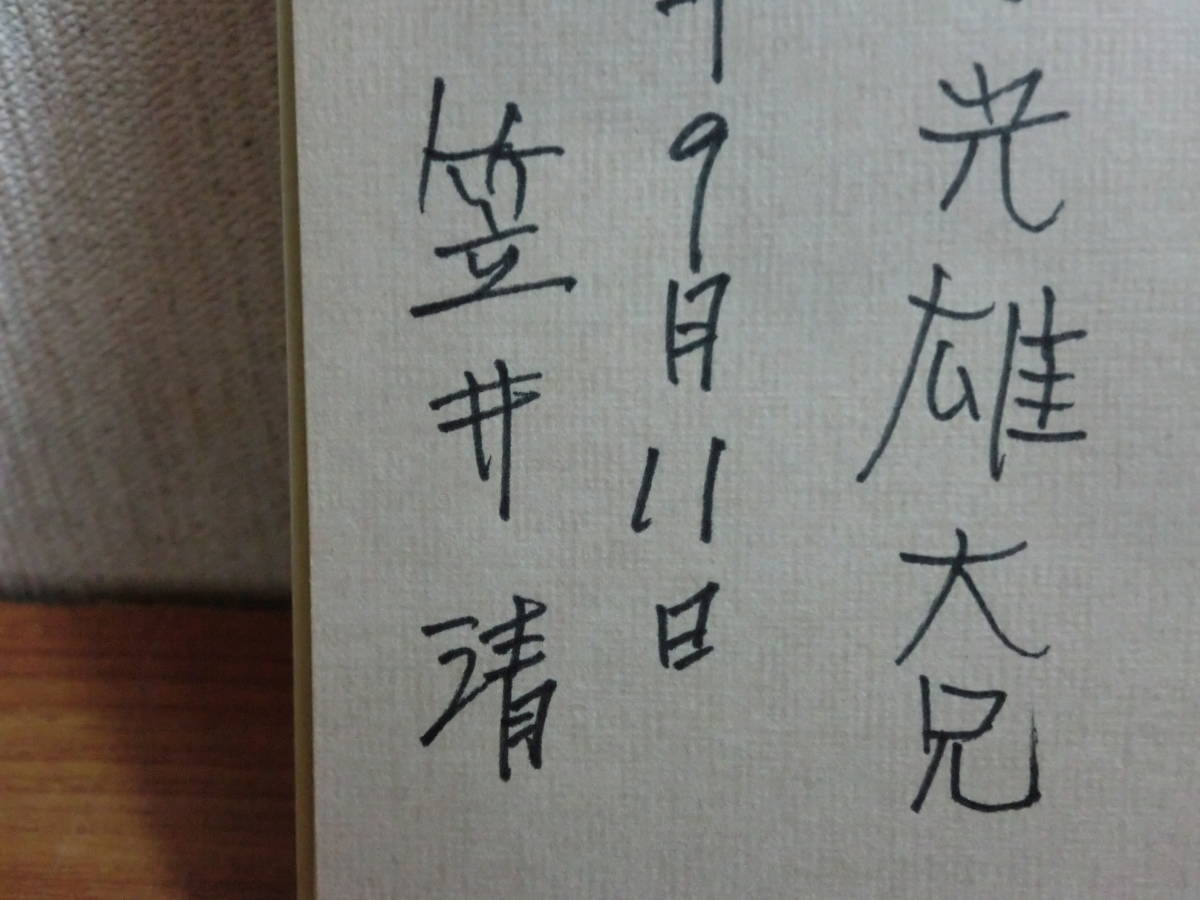 光雄大兄
年9月11日
笠井清